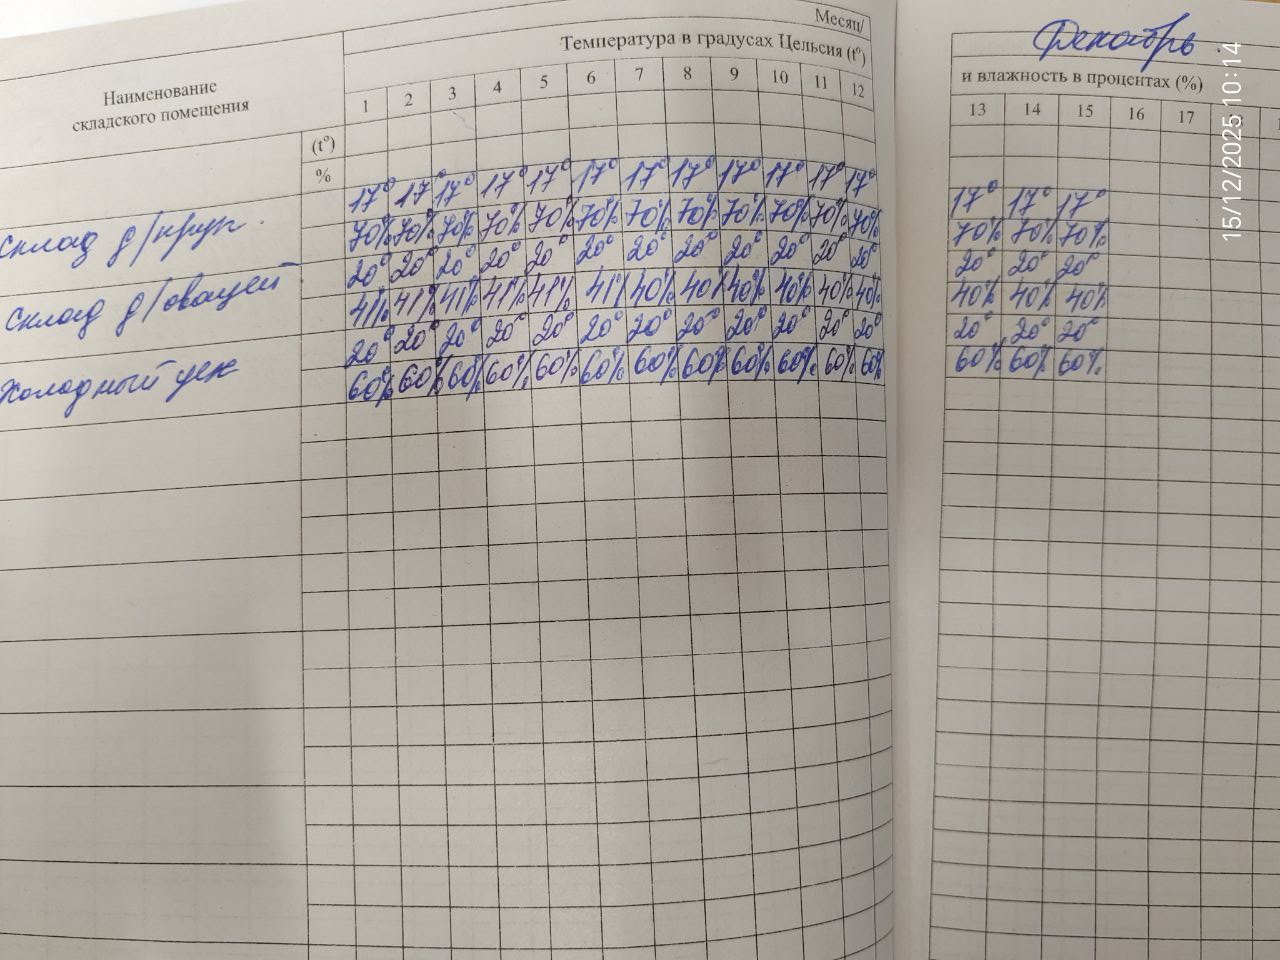 Месяц/ Декабрь
Температура в градусах Цельсия (t°) и влажность в процентах (%)
Наименование
складского помещения
1 2 3 4 5 6 7 8 9 10 11 12 13 14 15 16 17
(t°)
%
17° 17° 17° 17° 17° 17° 17° 17° 17° 17° 17° 17° 17° 17° 17°
склад д/круп. 70% 70% 70% 70% 70% 70% 70% 70% 70% 70% 70% 70% 70% 70% 70%
20° 20° 20° 20° 20 20° 20° 20° 20° 20° 20° 20° 20° 20° 20°
склад д/овощей 41% 41% 41% 41% 41% 41% 40% 40% 40% 40% 40% 40% 40% 40% 40%
20° 20° 20° 20° 20° 20° 20° 20° 20° 20° 20° 20° 20° 20° 20°
Холодный цех 60% 60% 60% 60% 60% 60% 60% 60% 60% 60% 60% 60% 60% 60% 60%
15/12/2025 10:14